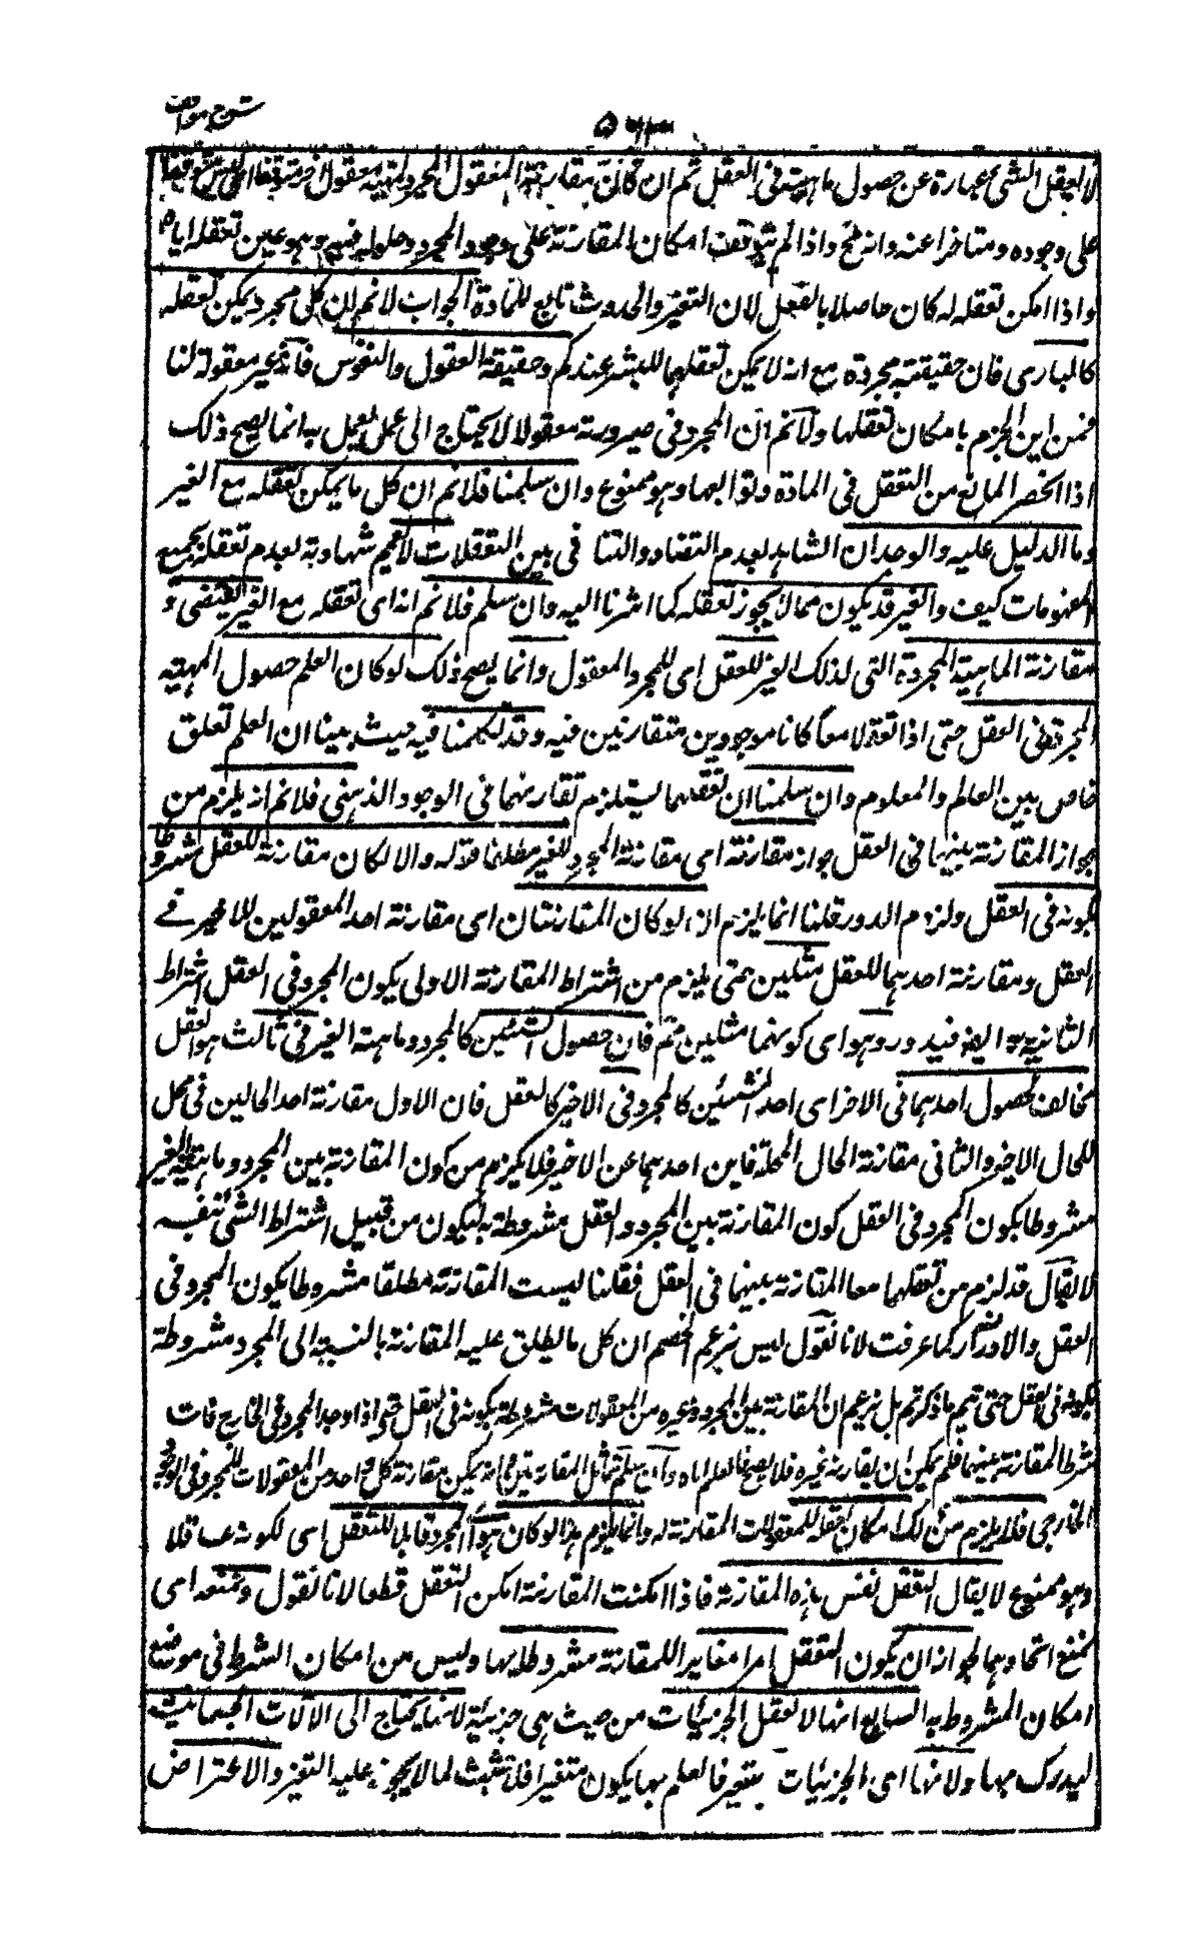 شرح مواقف
۵۷۳
لا تعقل الشئ عبارة عن حصول ماهيته فى العقل ثم ان كان مقارنة المعقول المجرد لمهية معقول اخر متوقفا
على وجوده ومتاخرا عنه وانه مح واذا لم يتوقف امكان المقارنة على وجود المجرد وحلوله فيه وهو عين تعقله اياه
واذا امكن تعقله له كان حاصلا بالفعل لان التغير والحدوث تابع للمادة الجواب لا نم ان كل مجرد يمكن تعقله
كالبارى فان حقيقته مجردة مع انه لا يمكن تعقلها للبشر عندكم وحقيقة العقول والنفوس فانه غير معقولة لنا
فمن اين الجزم بامكان تعقلها ولا نم ان المجرد فى صيرورته معقولا لا يحتاج الى عمل يعمل به انما يصح ذلك
اذا انحصر المانع من التعقل فى المادة ولواحقها وهو ممنوع وان سلمنا فلا نم ان كل ما يمكن تعقله مع الغير
وما الدليل عليه والوجدان الشاهد بعدم التضاد والتنا فى بين التعقلات لا تعم شهادته لعدم تعقله بجميع
المفهومات كيف والغير قد يكون مما لا يجوز تعقله كما اشرنا اليه وان سلم فلا نم انه اى تعقله مع الغير يقتضى
مقارنة الماهية المجردة التى لذلك الغير للعقل اى للمجرد المعقول وانما يصح ذلك لو كان العلم حصول المهية
المجردة فى العقل حتى اذا تعقلا معا كانا موجودين متقارنين فيه وقد تكلمنا فيه حيث بينا ان العلم تعلق
خاص بين العالم والمعلوم وان سلمنا ان تعقلهما يستلزم تقارنهما فى الوجود الذهنى فلا نم انه يلزم من
جواز المقارنة بينهما فى العقل جواز مقارنته اى مقارنة المجرد للغير مطلقا قوله والا لكان مقارنة للعقل مشروطا
بكونه فى العقل ولزم الدور قلنا انما يلزم اذا لو كان المقارنتان اى مقارنة احد المعقولين للاخر فى
العقل ومقارنة احدهما للعقل مثلين حتى يلزم من اشتراط المقارنة الاولى بكون المجرد فى العقل اشتراط
الثانية به ايضا فيدور وهو اى كونهما مثلين مم فان حصول الشيئين كالمجرد وماهية الغير فى ثالث هو العقل
مخالف لحصول احدهما فى الاخر اى احد الشيئين كالمجرد فى الاخير كالعقل فان الاول مقارنة احد الحالين فى محل
للحال الاخر والثانى مقارنة الحال لمحله فاين احدهما عن الاخر فلا يلزم من كون المقارنة بين المجرد وماهية الغير
مشروطا بكون المجرد فى العقل كون المقارنة بين المجرد والعقل مشروطة به ليكون من قبيل اشتراط الشئ بنفسه
لا يقال قد لزم من تعقلهما معا المقارنة بينهما فى العقل فقلنا ليست المقارنة مطلقا مشروطا بكون المجرد فى
العقل والا دار كما عرفت لانا نقول ليس يزعم الخصم ان كل ما يطلق عليه المقارنة بالنسبة الى المجرد مشروطة
بكونه فى العقل حتى يتم ما ذكرتم بل يزعم ان المقارنة بين المجرد وغيره من المعقولات مشروطة بكونه فى العقل حتى اذا وجد المجرد فى الخارج فات
شرط المقارنة بينهما فلم يمكن ان يقارنه غيره فلا يصح تعلم اياه وان سلم تماثل المقارنتين وانه يمكن مقارنة كل واحد من المعقولات للمجرد فى الوجود
الخارجى فلا يلزم من ذلك امكان تعقله للمعقولات المقارنة له وانما يلزم هذا لو كان هو المجرد قابلا للتعقل اى لكونه عاقلا
وهو ممنوع لا يقال التعقل نفس هذه المقارنة فاذا امكنت المقارنة امكن التعقل قطعا لانا نقول ونمنعه اى
نمنع اتحادهما لجواز ان يكون التعقل امرا مغايرا للمقارنة مشروطا بها وليس من امكان الشرط فى موضع
امكان المشروط به السابع انها لا تعقل الجزئيات من حيث هى جزئية لانها يحتاج الى الالات الجسمانية
ليدرك بها ولانها اى الجزئيات يتغير فالعلم بها يكون متغيرا فلا تثبت لما لا يجوز عليه التغير والاعتراض